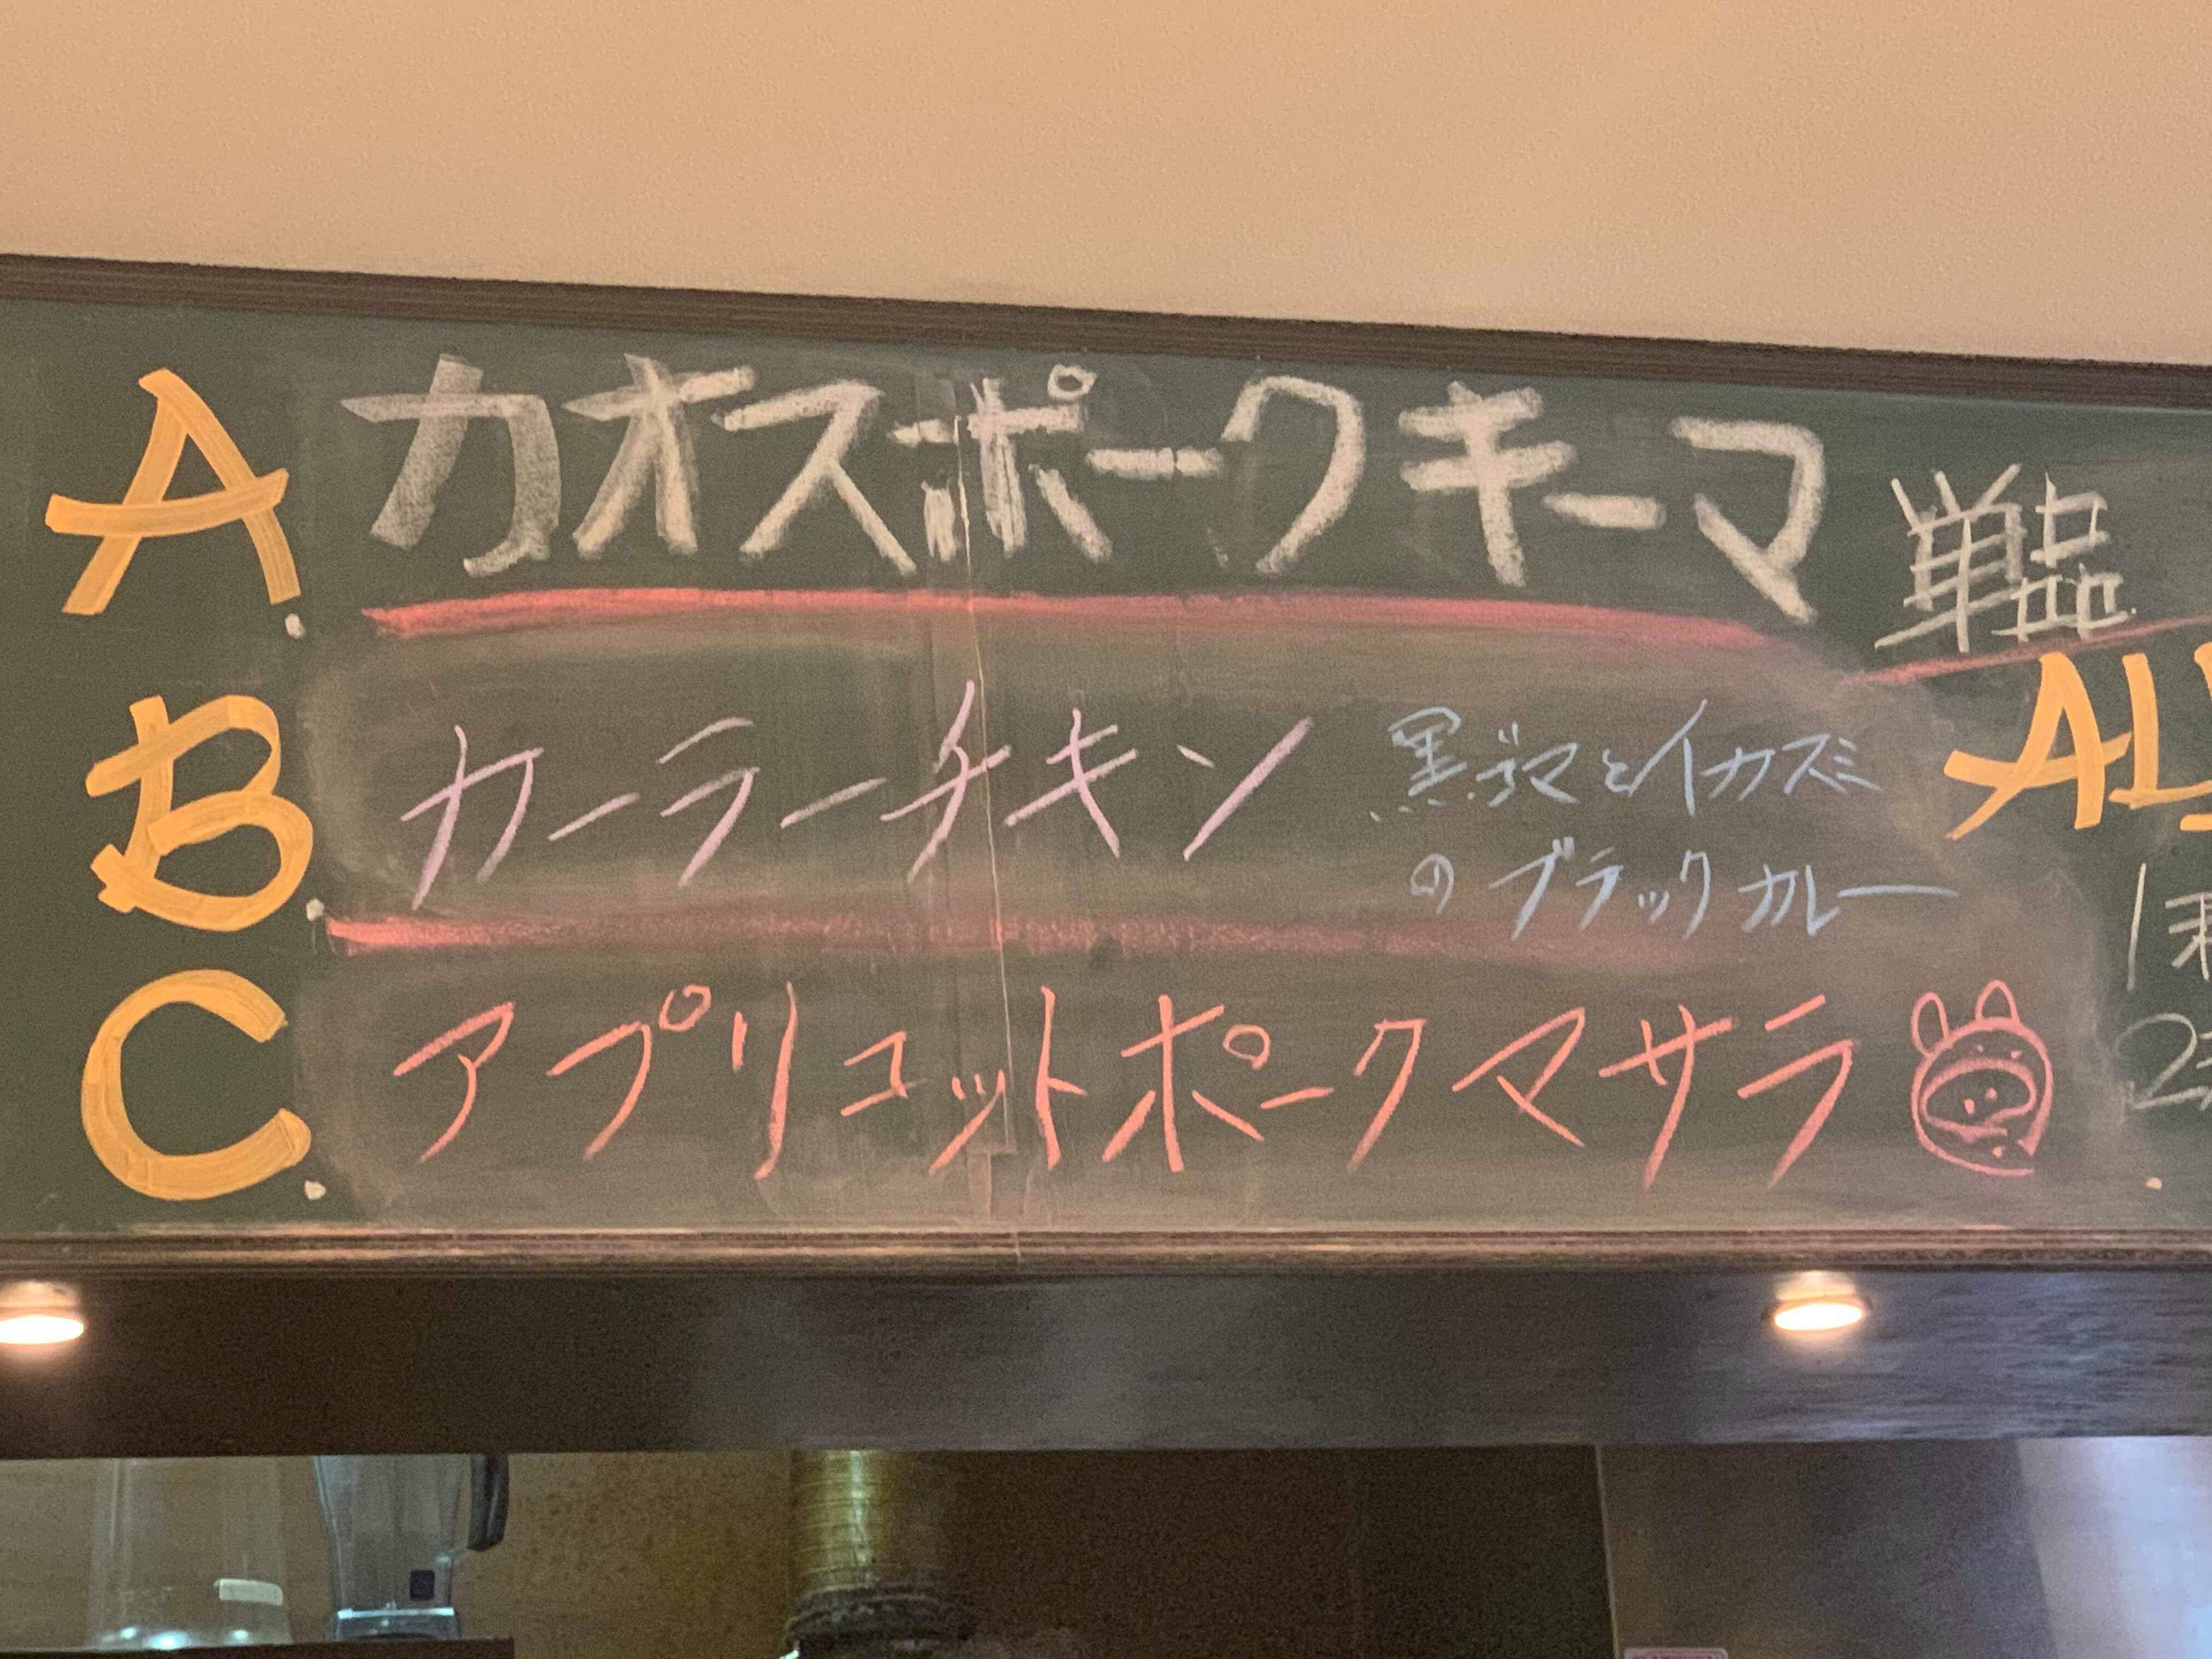 A. カオスポークキーマ
単品
B. カーラーチキン
黒ゴマとイカスミ
のブラックカレー
C. アプリコットポークマサラ
AL
1
2